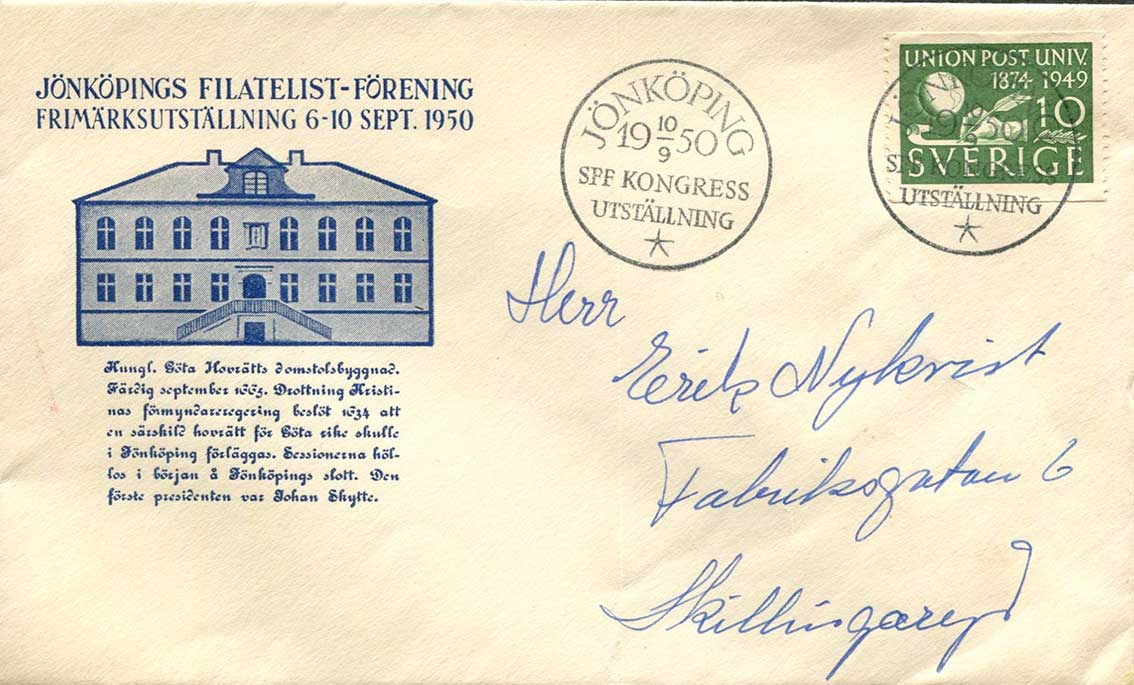 JÖNKÖPINGS FILATELIST-FÖRENING
FRIMÄRKSUTSTÄLLNING 6-10 SEPT. 1950
Kungl. Göta Hovrätts domstolsbyggnad.
Färdig september 1665. Drottning Kristi-
nas förmyndareregering beslöt 1634 att
en särskild hovrätt för Göta rike skulle
i Jönköping förläggas. Sessionerna höl-
los i början å Jönköpings slott. Den
förste presidenten var Johan Skytte.
JÖNKÖPING
19 10/9 50
SPF KONGRESS
UTSTÄLLNING
UNION POST. UNIV.
1874-1949
10
SVERIGE
JÖNKÖPING
19 10/9 50
SPF KONGRESS
UTSTÄLLNING
Herr
Erik Nykvist
Fabriksgatan 6
Skillingaryd